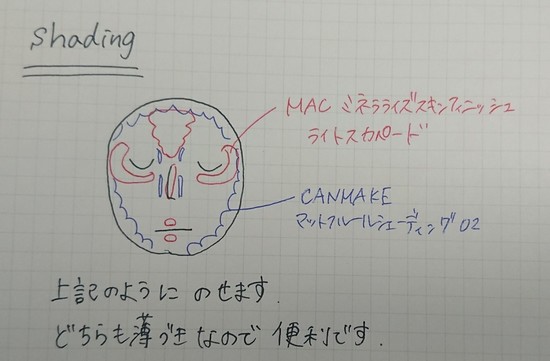 Shading
MAC ミネラライズスキンフィニッシュ
ライトスカペード
CANMAKE
マットフルールシェーディング02
上記のように のせます.
どちらも薄づきなので 便利です.